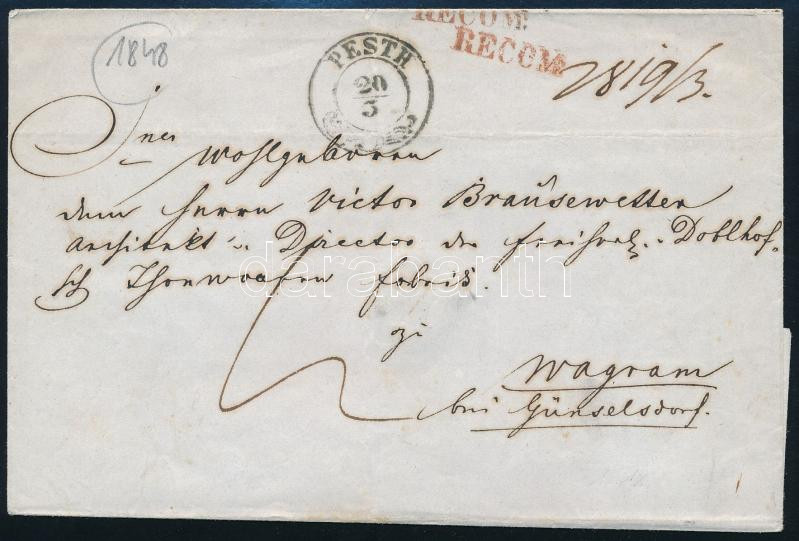 RECOM:
RECOM:
1848
PESTH
20/3
2819/3.
Wohlgeboren
dem Herrn Victor Brausewetter
Architekt u. Director der freiherl. Doblhof-
sch Thonwaaren Fabrik.
zu
Wagram
bei Günselsdorf.
darabanth